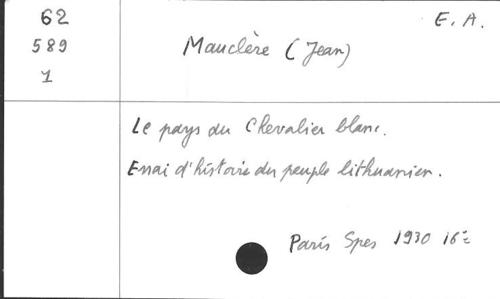 62
589
1
E. A.
Mauclère (Jean)
Le pays du Chevalier blanc.
Essai d'histoire du peuple lithuanien.
Paris Spes 1930 16°